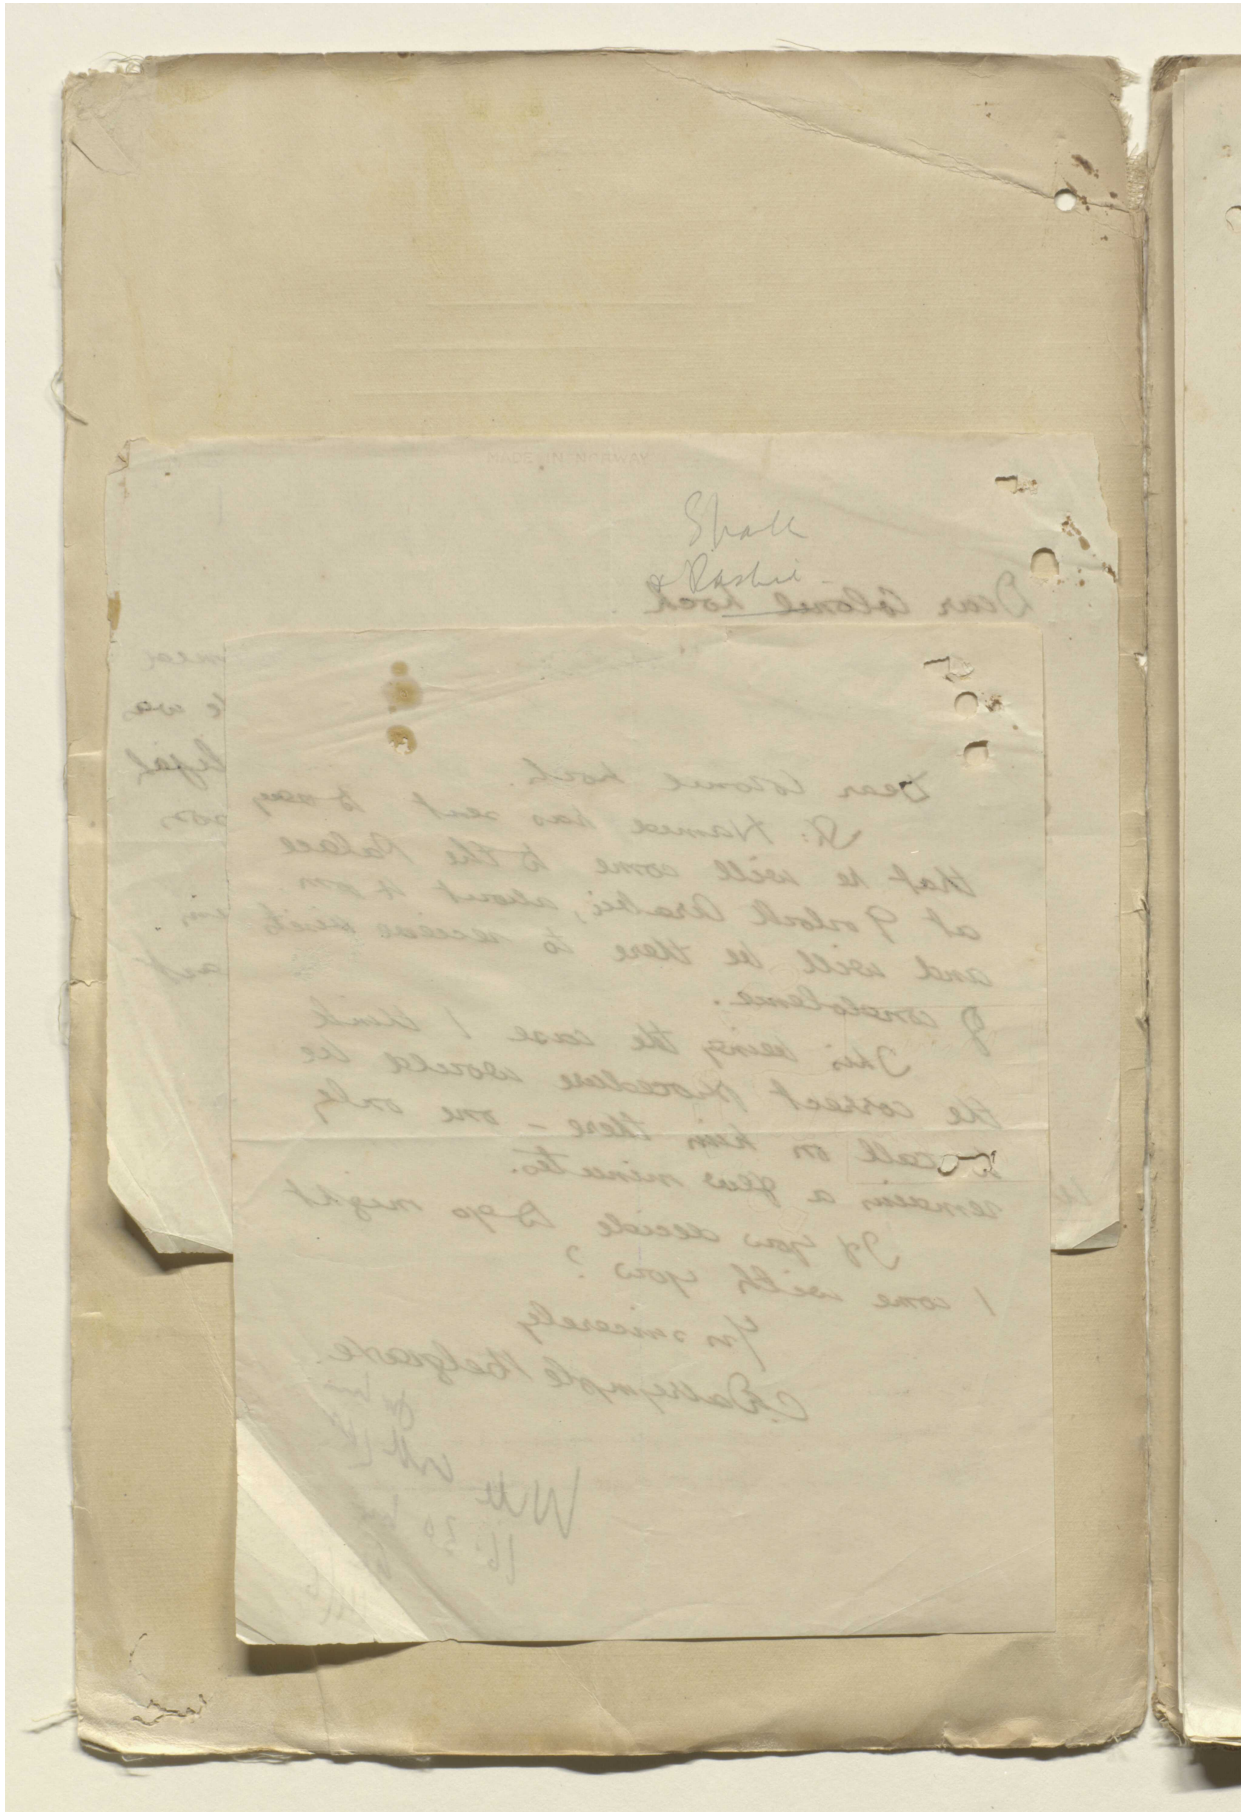 MADE IN NORWAY
Shall
Rashid
Dear Colonel Loch
Dear Colonel Loch.
Sh: Hamed has sent to say
that he will come to the Palace
at 9 oclock Arabic, about 4 pm
and will be there to receive visits
of condolence.
This being the case I think
the correct procedure would be
to call on him there – one only
remains a few minutes.
If you decide to go might
I come with you?
Yrs sincerely
C Dalrymple Belgrave.